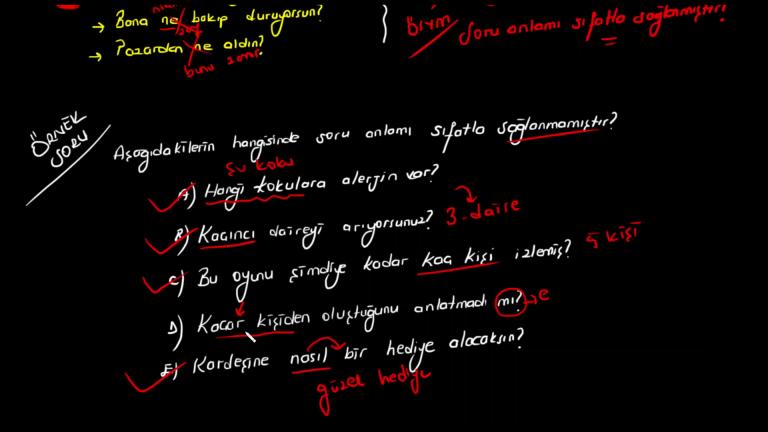 → Bana ne bakıp duruyorsun?
→ Pazardan ne aldın?
bunu
soru anlamı sıfatla sağlanmıştır
ÖRNEK SORU
Aşağıdakilerin hangisinde soru anlamı sıfatla sağlanmamıştır?
şu koku
A) Hangi kokulara alerjin var?
B) Kaçıncı daireyi arıyorsunuz? 3. daire
C) Bu oyunu şimdiye kadar kaç kişi izlemiş? 5 kişi
D) Kaçar kişiden oluştuğunu anlatmadı mı? → e
E) Kardeşine nasıl bir hediye alacaksın?
güzel hediye